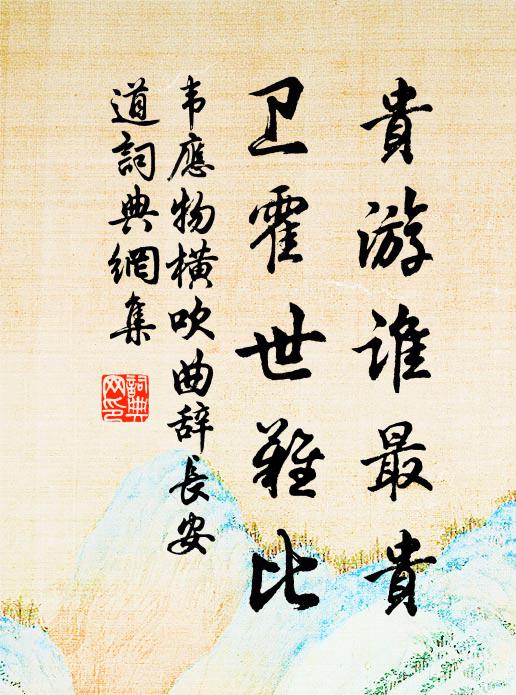 貴游谁最貴
卫霍世難比
韦應物橫吹曲辞長安
道詞典網集
詞典
网印